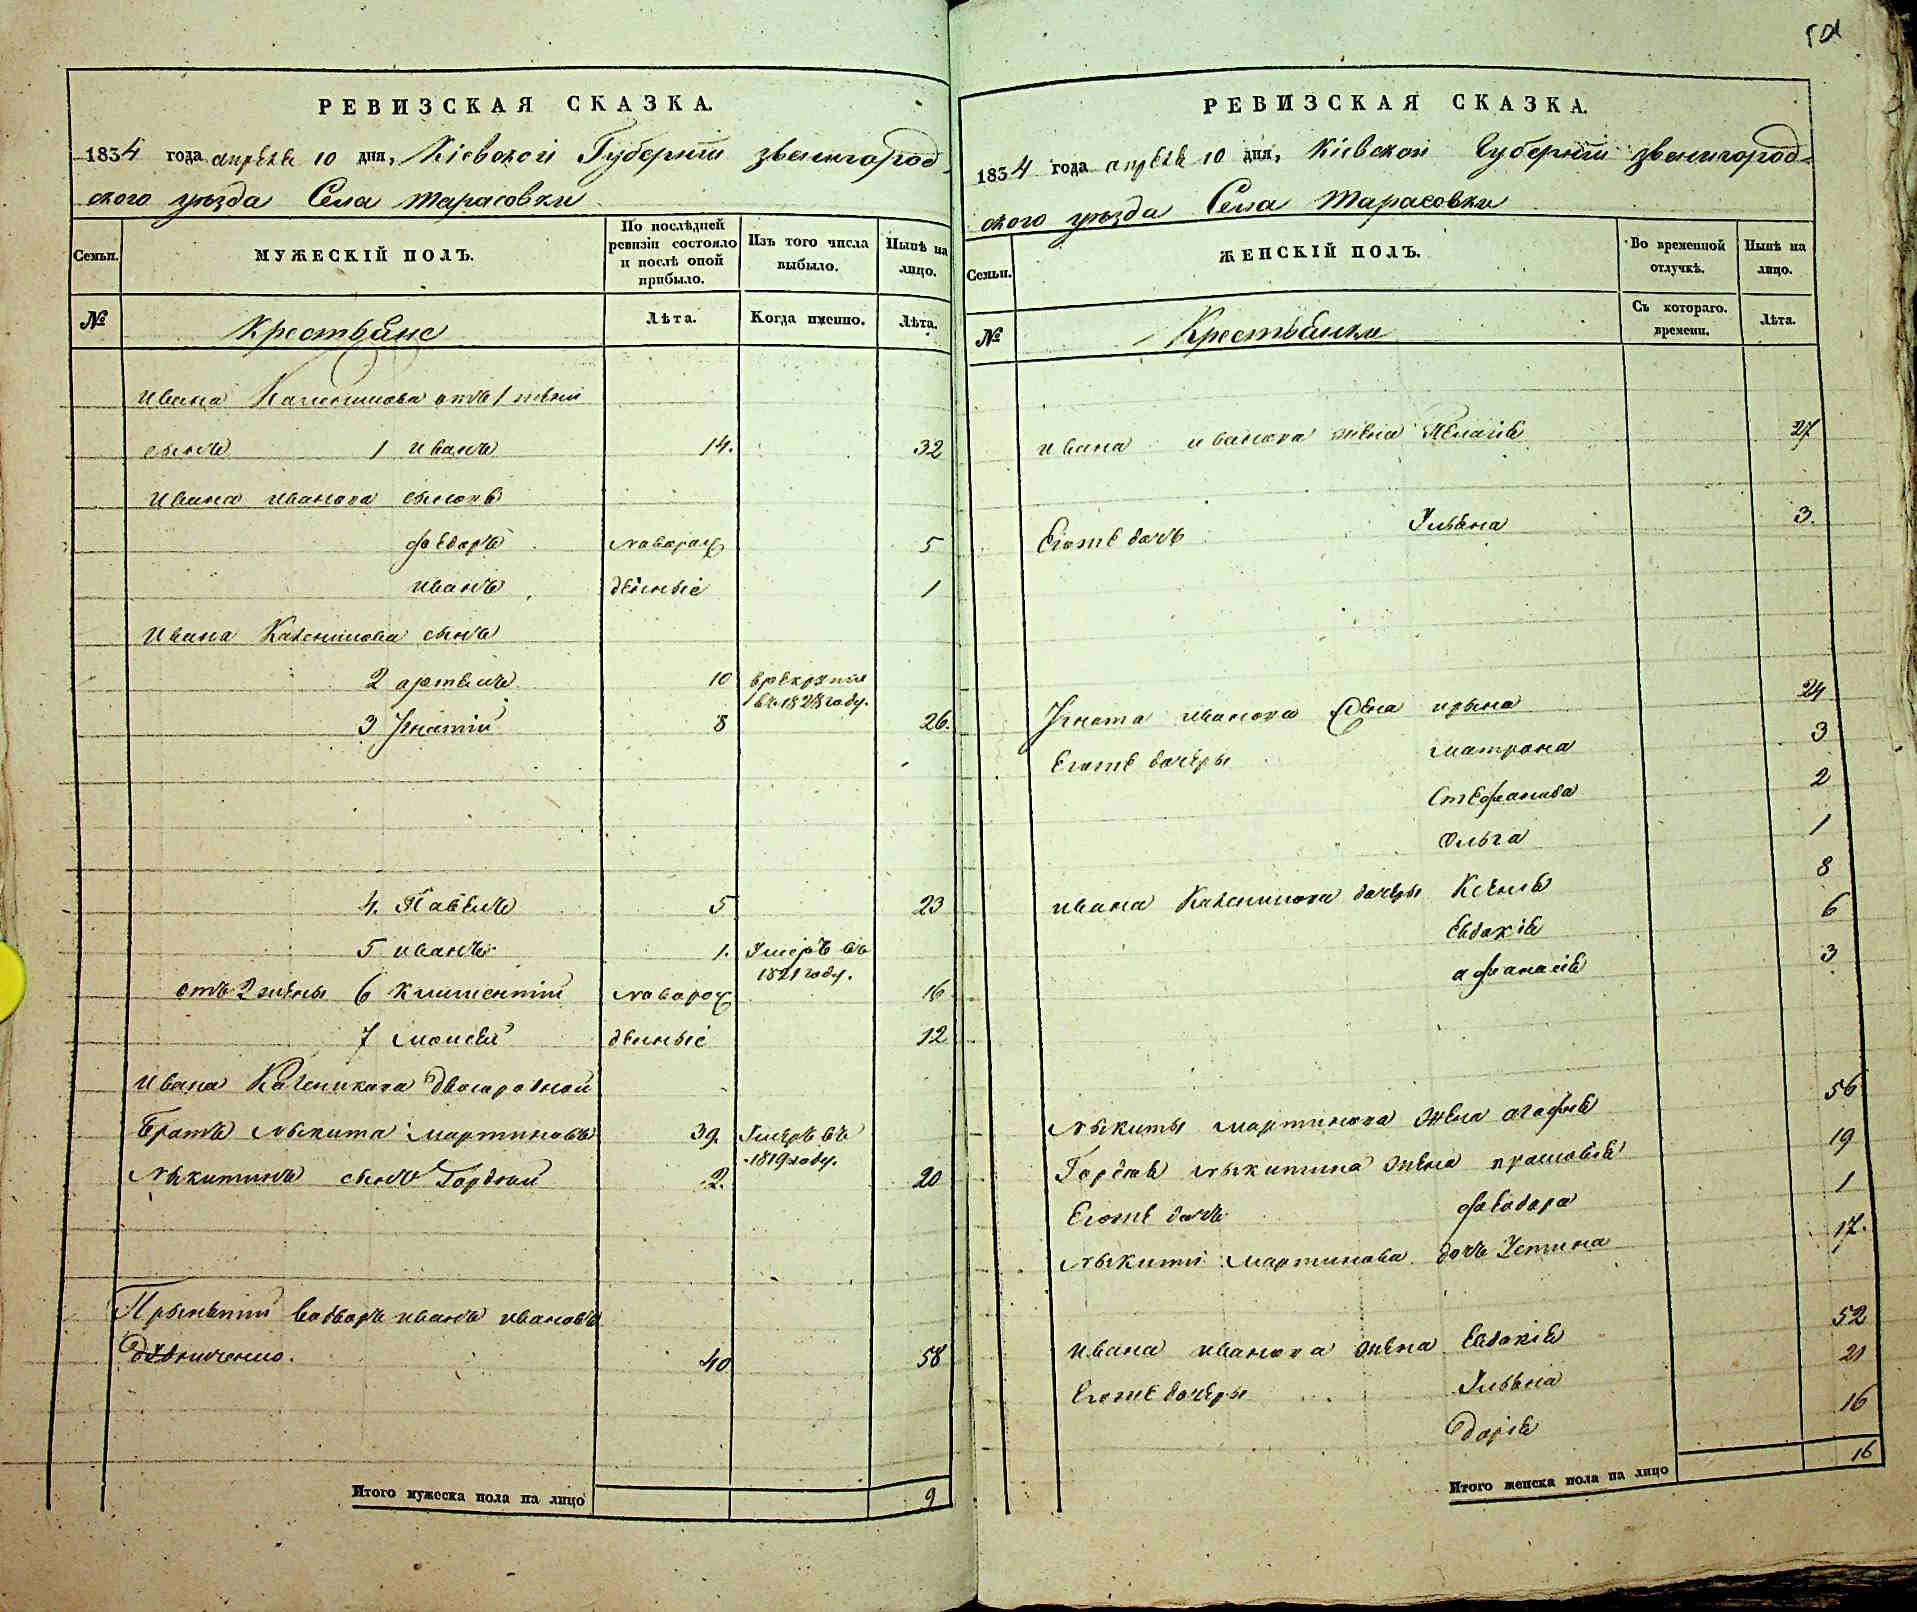 РЕВИЗСКАЯ СКАЗКА.
1834 года апреля 10 дня, Кіевской Губерніи звенигород-
ского уезда Села тарасовки
Семьи. МУЖЕСКІЙ ПОЛЪ. По послѣдней ревизіи состояло и послѣ оной прибыло. Изъ того числа выбыло. Нынѣ на лицо.
№ Крестьяне Лѣта. Когда именно. Лѣта.
ивана отъ 1 жени
сынъ 1 иванъ 14. 32
ивана иванова сынове
федоръ новорож 5
иванъ денные 1
ивана Каленикова сынъ
2 артемъ 10 врекруты
въ 1828 году.
3 Игнатій 8 26.
4. Павелъ 5 23
5 иванъ 1. Умеръ въ
1821 году.
отъ 2 жены 6 климентий новорож 16
7 моисей денные 12
ивана Каленикова двоюродной
Братъ Никита мартиновъ 39. Умеръ въ
1819 году.
Никитинъ сынъ Гордий 2. 20
Прынятий водворъ иванъ ивановъ
40 58
Итого мужеска пола на лицо 9
РЕВИЗСКАЯ СКАЗКА.
1834 года апреля 10 дня, Кіевской Губерніи звенигород-
ского уезда Села тарасовки
Семьи. ЖЕНСКІЙ ПОЛЪ. Во временной отлучкѣ. Нынѣ на лицо.
№ Крестьянки Съ котораго времени. Лѣта.
ивана иванова жена Пелагія 27
Егоже дочь Ульяна 3.
Игната иванова жена ирына 24
Егоже дочеры матрона 3
Стефанида 2
Ольга 1
ивана Каленикова дочеры Ксенія 8
Евдокія 6
афанасія 3
Никиты мартинова жена агафія 56
Гордея Никитина жена прасковія 19
Егоже дочь феодора 1
Никиты мартинова дочь Устина 17.
ивана иванова жена Евдокія 52
Егоже дочеры Ульяна 21
дарія 16
Итого женска пола на лицо 16